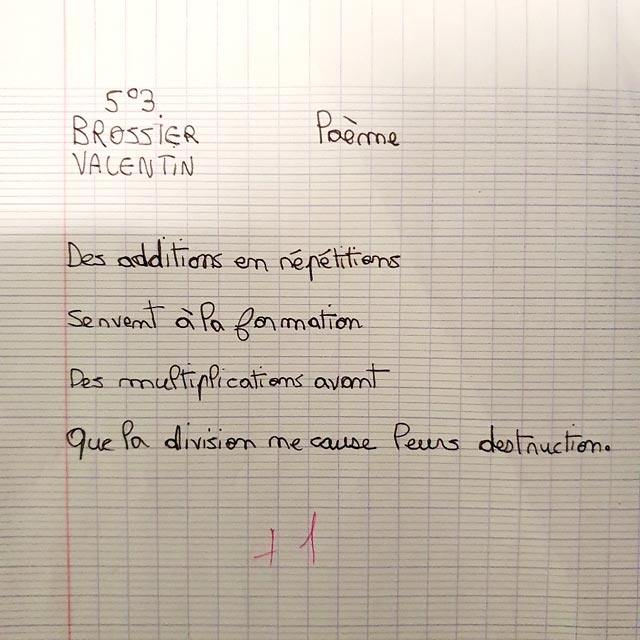 5°3
BROSSIER Poème
VALENTIN
Des additions en répétitions
Servent à la formation
Des multiplications avant
Que la division ne cause leurs destruction.
+1